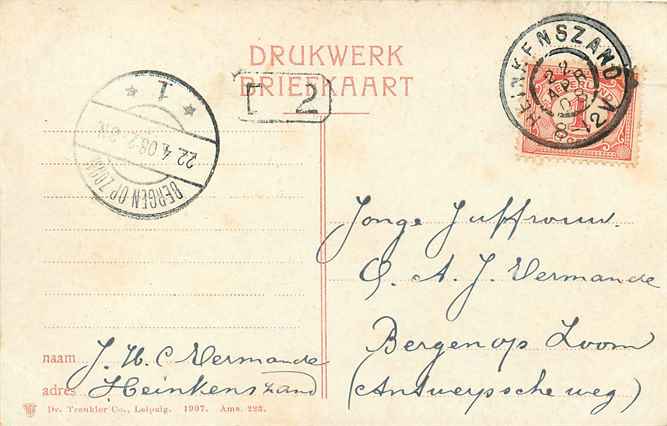 DRUKWERK
BRIEFKAART
HEINKENSZAND
22 APR 08
8-12V
1
BERGEN OP ZOOM
22.4.08
1
T 2
Jonge Juffrouw.
C. A. J. Vermande
Bergen op Zoom
(Antwerpsche weg)
naam J. H. C Vermande
adres Heinkenszand
Dr. Trenkler Co., Leipzig. 1907. Ams. 223.